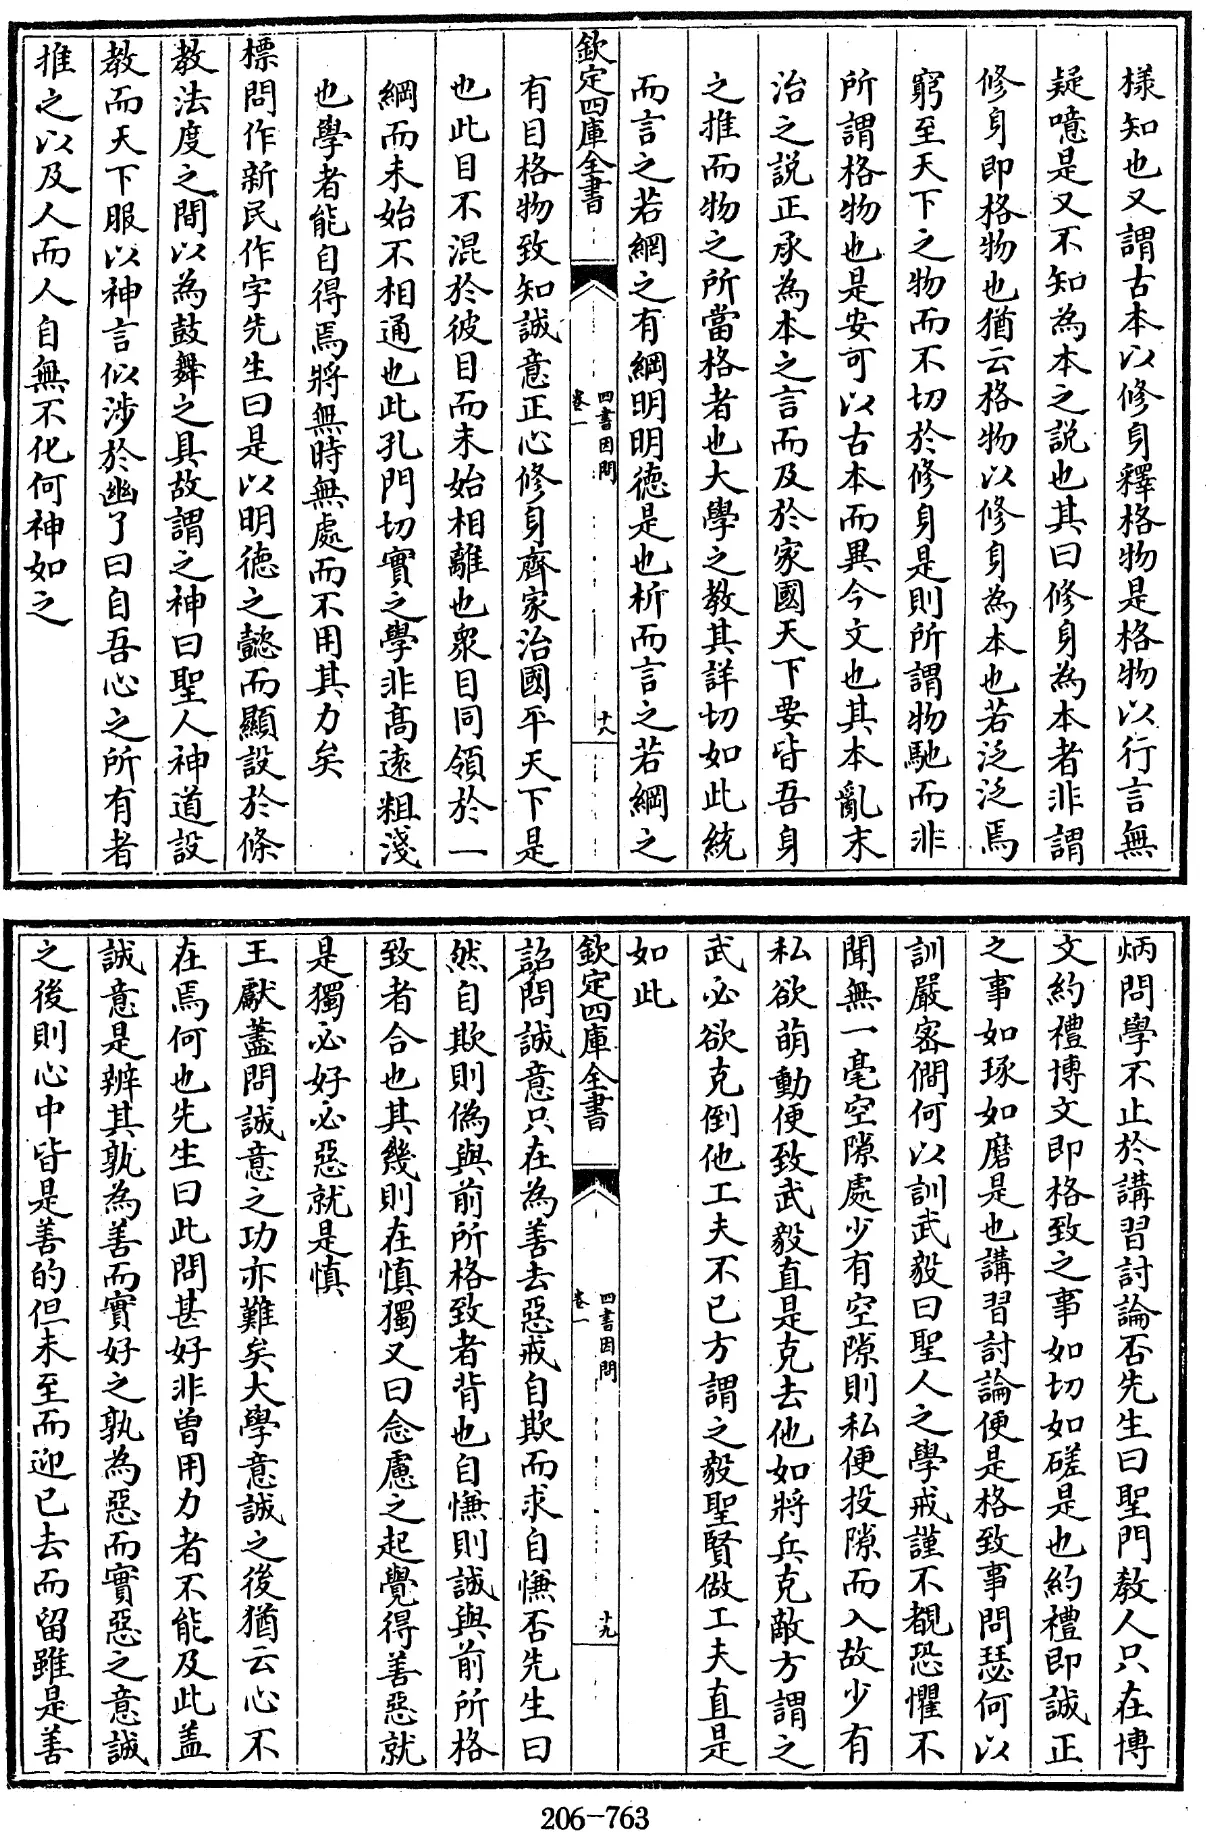 樣知也又謂古本以修身釋格物是格物以行言無
疑噫是又不知為本之説也其曰修身為本者非謂
修身即格物也猶云格物以修身為本也若泛泛焉
窮至天下之物而不切於修身是則所謂物馳而非
所謂格物也是安可以古本而異今文也其本亂末
治之説正承為本之言而及於家國天下要皆吾身
之推而物之所當格者也大學之教其詳切如此統
而言之若網之有綱明明德是也析而言之若綱之
欽定四庫全書
四書因問
卷一
十八
有目格物致知誠意正心修身齊家治國平天下是
也此目不混於彼目而未始相離也衆目同領於一
綱而未始不相通也此孔門切實之學非高遠粗淺
也學者能自得焉將無時無處而不用其力矣
標問作新民作字先生曰是以明德之懿而顯設於條
教法度之間以為鼓舞之具故謂之神曰聖人神道設
教而天下服以神言似涉於幽了曰自吾心之所有者
推之以及人而人自無不化何神如之
炳問學不止於講習討論否先生曰聖門教人只在博
文約禮博文即格致之事如切如磋是也約禮即誠正
之事如琢如磨是也講習討論便是格致事問瑟何以
訓嚴密僩何以訓武毅曰聖人之學戒謹不覩恐懼不
聞無一毫空隙處少有空隙則私便投隙而入故少有
私欲萌動便致武毅直是克去他如將兵克敵方謂之
武必欲克倒他工夫不已方謂之毅聖賢做工夫直是
如此
欽定四庫全書
四書因問
卷一
十九
詔問誠意只在為善去惡戒自欺而求自慊否先生曰
然自欺則偽與前所格致者背也自慊則誠與前所格
致者合也其幾則在慎獨又曰念慮之起覺得善惡就
是獨必好必惡就是慎
王獻蓋問誠意之功亦難矣大學意誠之後猶云心不
在焉何也先生曰此問甚好非曾用力者不能及此盖
誠意是辨其孰為善而實好之孰為惡而實惡之意誠
之後則心中皆是善的但未至而迎已去而留雖是善
206-763